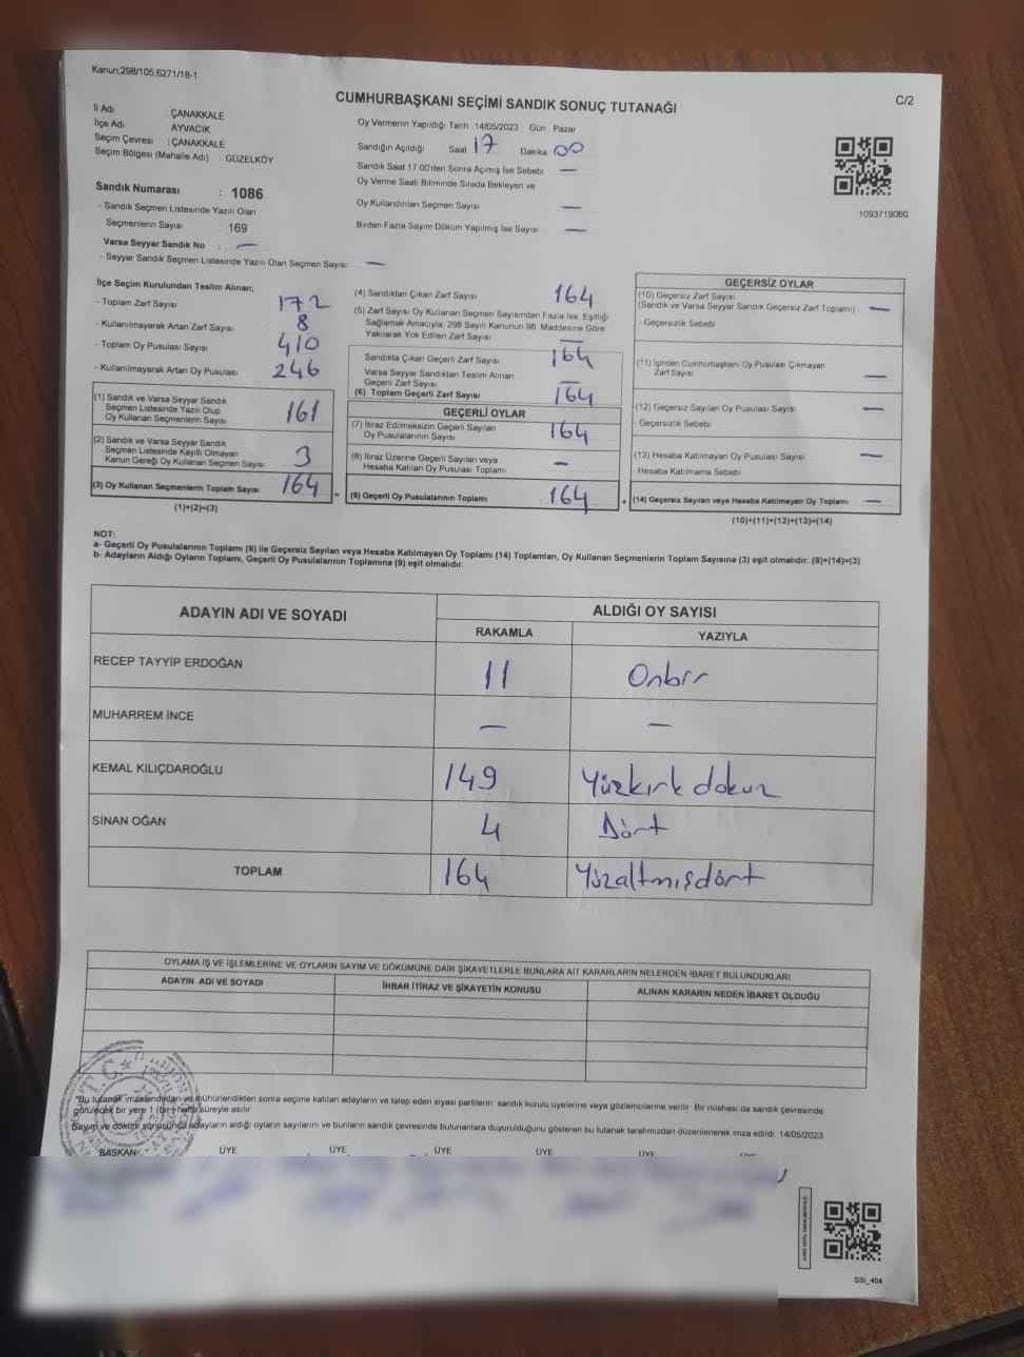 Kanun:298/105,6271/18-1
CUMHURBAŞKANI SEÇİMİ SANDIK SONUÇ TUTANAĞI
C/2
İl Adı : ÇANAKKALE
İlçe Adı : AYVACIK
Seçim Çevresi : ÇANAKKALE
Seçim Bölgesi (Mahalle Adı) : GÜZELKÖY
Sandık Numarası : 1086
- Sandık Seçmen Listesinde Yazılı Olan
Seçmenlerin Sayısı : 169
Varsa Seyyar Sandık No : —
- Seyyar Sandık Seçmen Listesinde Yazılı Olan Seçmen Sayısı: —
Oy Vermenin Yapıldığı Tarih :14/05/2023 Gün : Pazar
Sandığın Açıldığı Saat 17 Dakika 00
Sandık Saat 17:00'den Sonra Açımış İse Sebebi —
Oy Verme Saati Bitiminde Sırada Bekleyen ve
Oy Kullandırılan Seçmen Sayısı —
Birden Fazla Sayım Döküm Yapılmış İse Sayısı —
1093719060
İlçe Seçim Kurulundan Teslim Alınan;
- Toplam Zarf Sayısı 172
- Kullanılmayarak Artan Zarf Sayısı 8
- Toplam Oy Pusulası Sayısı 410
- Kullanılmayarak Artan Oy Pusulası 246
(1) Sandık ve Varsa Seyyar Sandık
Seçmen Listesinde Yazılı Olup
Oy Kullanan Seçmenlerin Sayısı 161
(2) Sandık ve Varsa Seyyar Sandık
Seçmen Listesinde Kayıtlı Olmayan
Kanun Gereği Oy Kullanan Seçmen Sayısı 3
(3) Oy Kullanan Seçmenlerin Toplam Sayısı 164
(1)+(2)=(3)
(4) Sandıktan Çıkan Zarf Sayısı 164
(5) Zarf Sayısı Oy Kullanan Seçmen Sayısından Fazla İse, Eşitliği
Sağlamak Amacıyla; 298 Sayılı Kanunun 98. Maddesine Göre
Yakılarak Yok Edilen Zarf Sayısı —
Sandıkta Çıkan Geçerli Zarf Sayısı 164
Varsa Seyyar Sandıktan Teslim Alınan
Geçerli Zarf Sayısı —
(6) Toplam Geçerli Zarf Sayısı 164
GEÇERLİ OYLAR
(7) İtiraz Edilmeksizin Geçerli Sayılan
Oy Pusulalarının Sayısı 164
(8) İtiraz Üzerine Geçerli Sayılan veya
Hesaba Katılan Oy Pusulası Toplamı —
(9) Geçerli Oy Pusulalarının Toplamı 164
GEÇERSİZ OYLAR
(10) Geçersiz Zarf Sayısı
(Sandık ve Varsa Seyyar Sandık Geçersiz Zarf Toplamı) —
- Geçersizlik Sebebi
(11) İçinden Cumhurbaşkanı Oy Pusulası Çıkmayan
Zarf Sayısı —
(12) Geçersiz Sayılan Oy Pusulası Sayısı —
- Geçersizlik Sebebi
(13) Hesaba Katılmayan Oy Pusulası Sayısı —
Hesaba Katılmama Sebebi
(14) Geçersiz Sayılan veya Hesaba Katılmayan Oy Toplamı —
(10)+(11)+(12)+(13)=(14)
NOT:
a- Geçerli Oy Pusulalarının Toplamı (9) ile Geçersiz Sayılan veya Hesaba Katılmayan Oy Toplamı (14) Toplamları, Oy Kullanan Seçmenlerin Toplam Sayısına (3) eşit olmalıdır: (9)+(14)=(3)
b- Adayların Aldığı Oyların Toplamı, Geçerli Oy Pusulalarının Toplamına (9) eşit olmalıdır.
ADAYIN ADI VE SOYADI ALDIĞI OY SAYISI
RAKAMLA YAZIYLA
RECEP TAYYİP ERDOĞAN 11 Onbir
MUHARREM İNCE — —
KEMAL KILIÇDAROĞLU 149 Yüzkırk dokuz
SİNAN OĞAN 4 Dört
TOPLAM 164 Yüzaltmışdört
OYLAMA İŞ VE İŞLEMLERİNE VE OYLARIN SAYIM VE DÖKÜMÜNE DAİR ŞİKAYETLERLE BUNLARA AİT KARARLARIN NELERDEN İBARET BULUNDUKLARI
ADAYIN ADI VE SOYADI İHBAR İTİRAZ VE ŞİKAYETİN KONUSU ALINAN KARARIN NEDEN İBARET OLDUĞU
T.C.
"Bu tutanak imzalandıktan ve mühürlendikten sonra seçime katılan adayların ve talep eden siyasi partilerin sandık kurulu üyelerine veya gözlemcilerine verilir. Bir nüshası da sandık çevresinde
görülecek bir yere 1 (bir) hafta süreyle asılır.
Sayım ve döküm sonucunda adayların aldığı oyların sayılarını ve bunların sandık çevresinde bulunanlara duyurulduğunu gösteren bu tutanak tarafımızdan düzenlenerek imza edildi. 14/05/2023
BAŞKAN ÜYE ÜYE ÜYE ÜYE ÜYE
SSİ_404